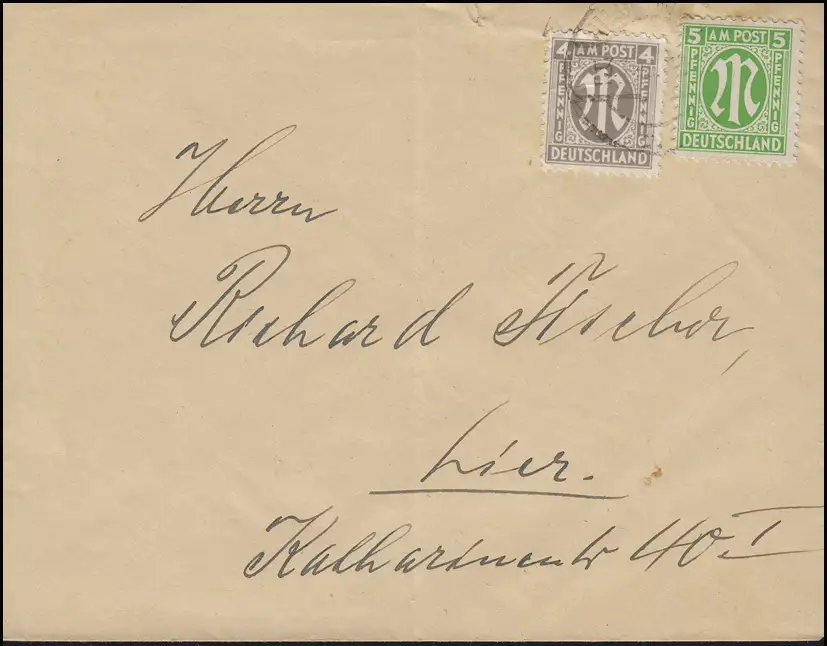 4 AM POST 4
PFENNIG PFENNIG
M
DEUTSCHLAND
5 AM POST 5
PFENNIG PFENNIG
M
DEUTSCHLAND
Herrn
Richard Fischer,
hier.
Katharinenstr 40 I